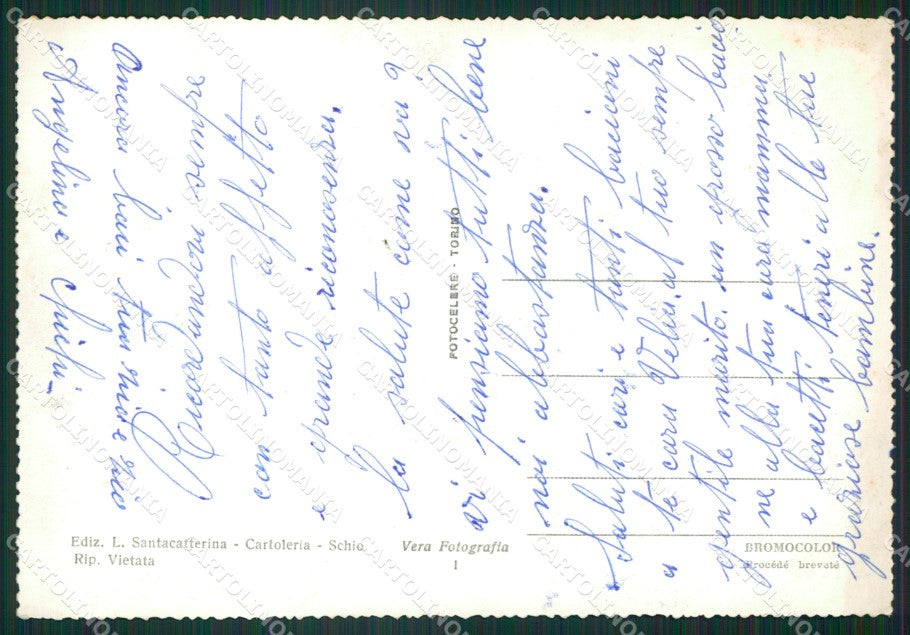 Ancora baci tuoi zio e zia
Angelino e
Ricordandoci sempre
con tanto affetto
e grande riconoscenza.
la salute come va?
vi pensiamo tutti bene
noi abbastanza.
Saluti cari e tanti bacioni
a te cara al tuo sempre
gentile marito. un grosso bacio
ne alla tua cara mamma
e bacetti teneri alle tue
graziose bambine.
FOTOCELERE - TORINO
Ediz. L. Santacatterina - Cartoleria - Schio
Rip. Vietata
Vera Fotografia
1
BROMOCOLOR
Procédé breveté
CARTOLINOMANIA